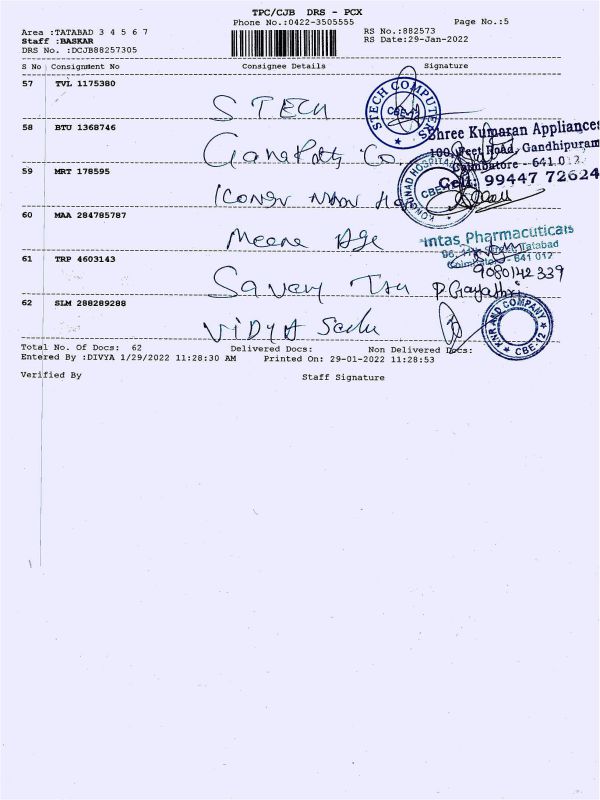 TPC/CJB DRS - PCX
Phone No.:0422-3505555 Page No.:5
Area :TATABAD 3 4 5 6 7 RS No.:882573
Staff :BASKAR RS Date:29-Jan-2022
DRS No. :DCJB88257305
S No Consignment No Consignee Details Signature
57 TVL 1175380
S TECH
STECH COMPUTERS
CBE-12
58 BTU 1368746
Ganapathy Co.
Shree Kumaran Appliances
100, Feet Road, Gandhipuram
Coimbatore - 641 012.
Cell: 99447 72624
59 MRT 178595
KONGUNAD HOSPITAL
CBE
60 MAA 284785787
Meena Age
Intas Pharmacuticals
Tatabad
Coimbatore - 641 012
61 TRP 4603143
9080142339
P. Gayathri
62 SLM 288289288
VIDYA
KNR AND COMPANY
CBE-12
Total No. Of Docs: 62 Delivered Docs: Non Delivered Docs:
Entered By :DIVYA 1/29/2022 11:28:30 AM Printed On: 29-01-2022 11:28:53
Verified By Staff Signature